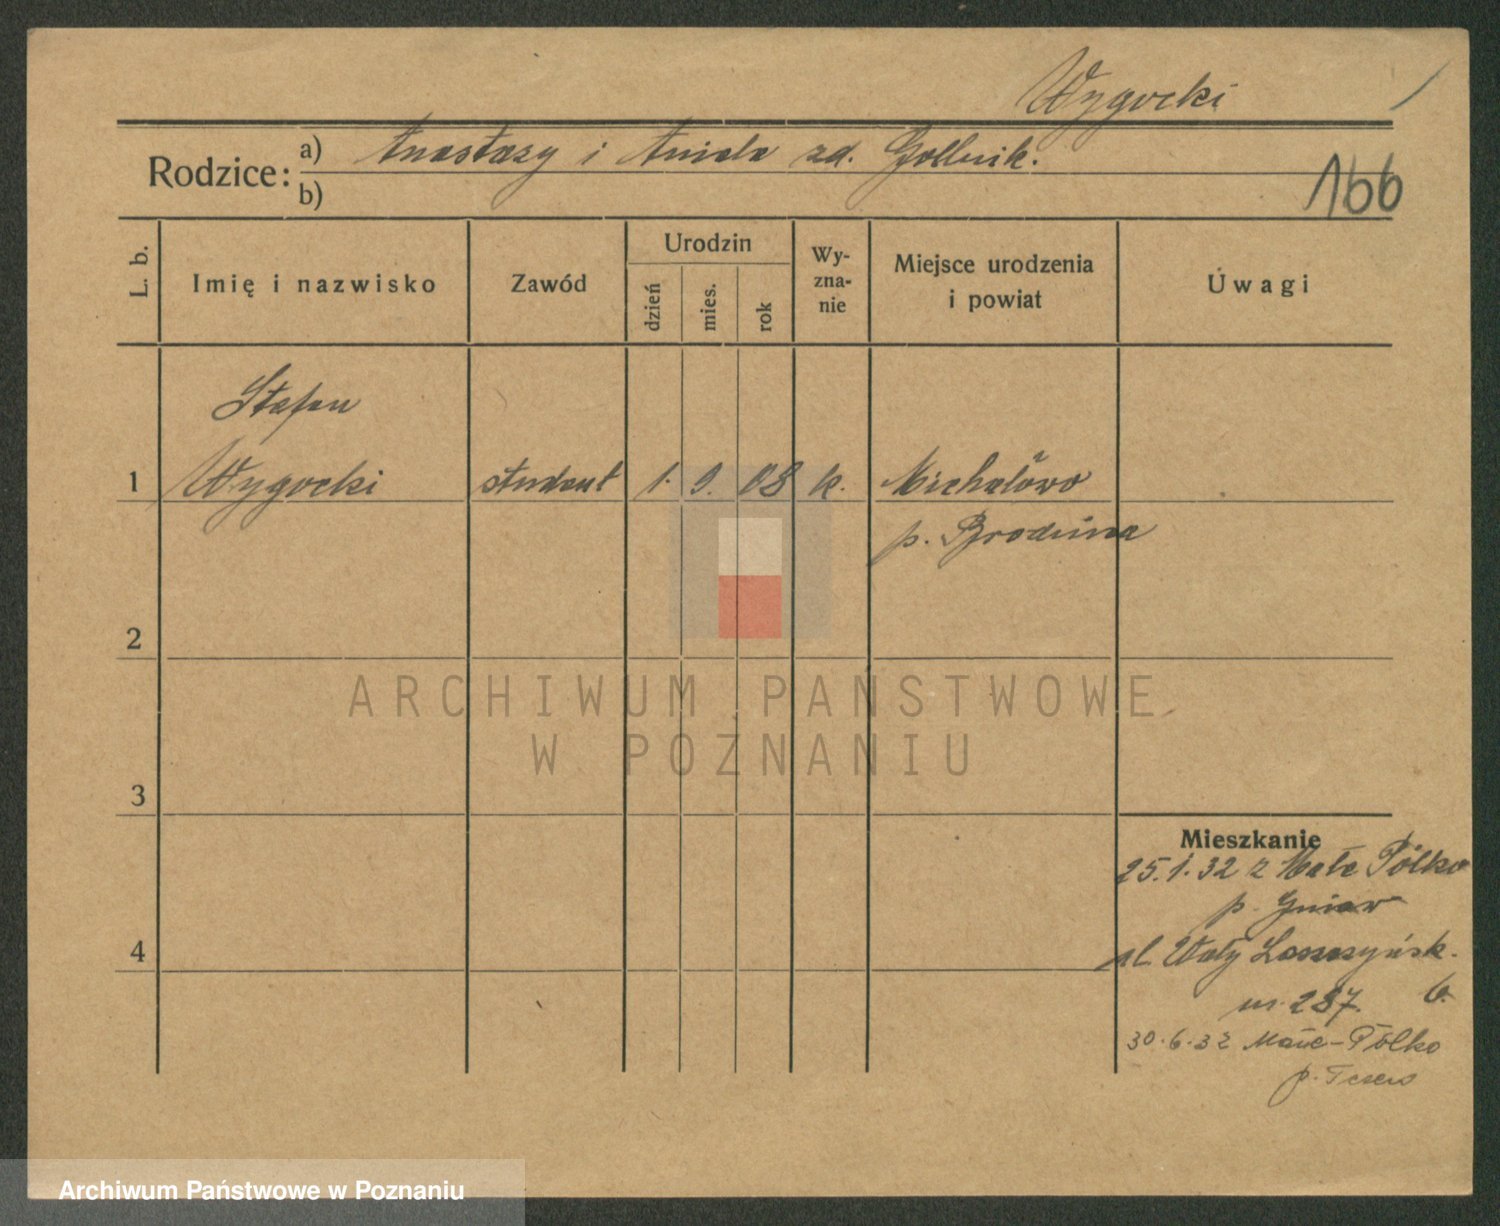 Wygocki
Rodzice: a) Anastazy i Aniela zd. Gollnik.
b)
166
L. b.
Imię i nazwisko
Zawód
Urodzin
dzień
mies.
rok
Wy-
zna-
nie
Miejsce urodzenia
i powiat
Uwagi
Stefan
1 Wygocki student 1. 9. 08 k. Michałowo
p. Brodnica
2
ARCHIWUM PAŃSTWOWE
W POZNANIU
3
Mieszkanie
25.1.32 z Małe Pólko
p. Gniew
4
ul. Wały Leszczyńsk.
nr. 287. 6.
30.6.32 Małe-Pólko
p. Tczew
Archiwum Państwowe w Poznaniu